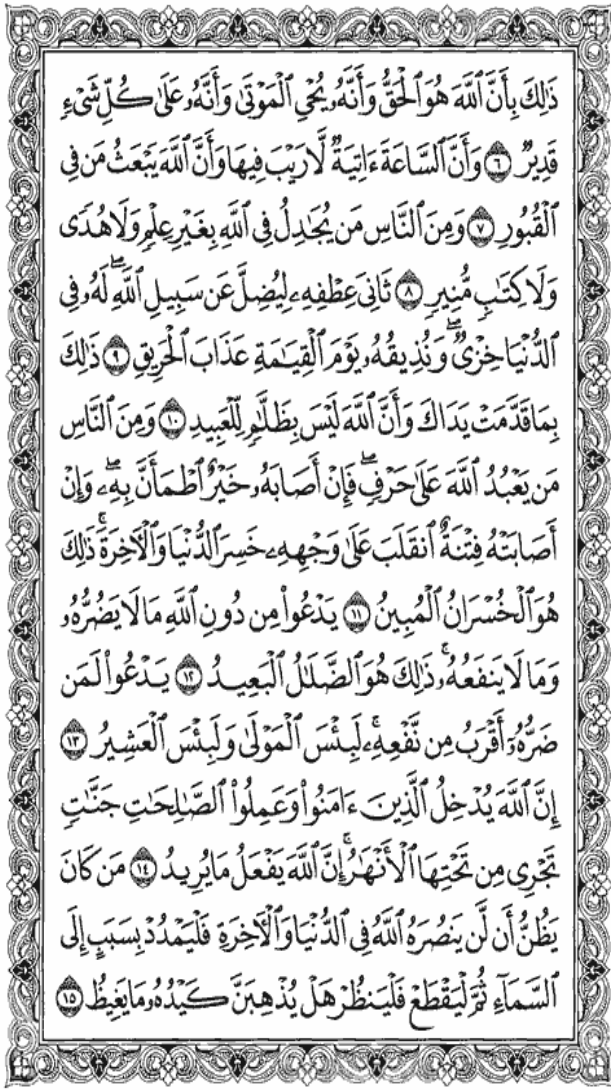 ذَٰلِكَ بِأَنَّ ٱللَّهَ هُوَ ٱلْحَقُّ وَأَنَّهُۥ يُحْىِ ٱلْمَوْتَىٰ وَأَنَّهُۥ عَلَىٰ كُلِّ شَىْءٍ
قَدِيرٌ ٦ وَأَنَّ ٱلسَّاعَةَ ءَاتِيَةٌ لَّا رَيْبَ فِيهَا وَأَنَّ ٱللَّهَ يَبْعَثُ مَن فِى
ٱلْقُبُورِ ٧ وَمِنَ ٱلنَّاسِ مَن يُجَٰدِلُ فِى ٱللَّهِ بِغَيْرِ عِلْمٍ وَلَا هُدًى
وَلَا كِتَٰبٍ مُّنِيرٍ ٨ ثَانِىَ عِطْفِهِۦ لِيُضِلَّ عَن سَبِيلِ ٱللَّهِ ۖ لَهُۥ فِى
ٱلدُّنْيَا خِزْىٌ ۖ وَنُذِيقُهُۥ يَوْمَ ٱلْقِيَٰمَةِ عَذَابَ ٱلْحَرِيقِ ٩ ذَٰلِكَ
بِمَا قَدَّمَتْ يَدَاكَ وَأَنَّ ٱللَّهَ لَيْسَ بِظَلَّٰمٍ لِّلْعَبِيدِ ١٠ وَمِنَ ٱلنَّاسِ
مَن يَعْبُدُ ٱللَّهَ عَلَىٰ حَرْفٍ ۖ فَإِنْ أَصَابَهُۥ خَيْرٌ ٱطْمَأَنَّ بِهِۦ ۖ وَإِنْ
أَصَابَتْهُ فِتْنَةٌ ٱنقَلَبَ عَلَىٰ وَجْهِهِۦ خَسِرَ ٱلدُّنْيَا وَٱلْـَٔاخِرَةَ ۚ ذَٰلِكَ
هُوَ ٱلْخُسْرَانُ ٱلْمُبِينُ ١١ يَدْعُوا۟ مِن دُونِ ٱللَّهِ مَا لَا يَضُرُّهُۥ
وَمَا لَا يَنفَعُهُۥ ۚ ذَٰلِكَ هُوَ ٱلضَّلَٰلُ ٱلْبَعِيدُ ١٢ يَدْعُوا۟ لَمَن
ضَرُّهُۥٓ أَقْرَبُ مِن نَّفْعِهِۦ ۚ لَبِئْسَ ٱلْمَوْلَىٰ وَلَبِئْسَ ٱلْعَشِيرُ ١٣
إِنَّ ٱللَّهَ يُدْخِلُ ٱلَّذِينَ ءَامَنُوا۟ وَعَمِلُوا۟ ٱلصَّٰلِحَٰتِ جَنَّٰتٍ
تَجْرِى مِن تَحْتِهَا ٱلْأَنْهَٰرُ ۚ إِنَّ ٱللَّهَ يَفْعَلُ مَا يُرِيدُ ١٤ مَن كَانَ
يَظُنُّ أَن لَّن يَنصُرَهُ ٱللَّهُ فِى ٱلدُّنْيَا وَٱلْـَٔاخِرَةِ فَلْيَمْدُدْ بِسَبَبٍ إِلَى
ٱلسَّمَآءِ ثُمَّ لْيَقْطَعْ فَلْيَنظُرْ هَلْ يُذْهِبَنَّ كَيْدُهُۥ مَا يَغِيظُ ١٥